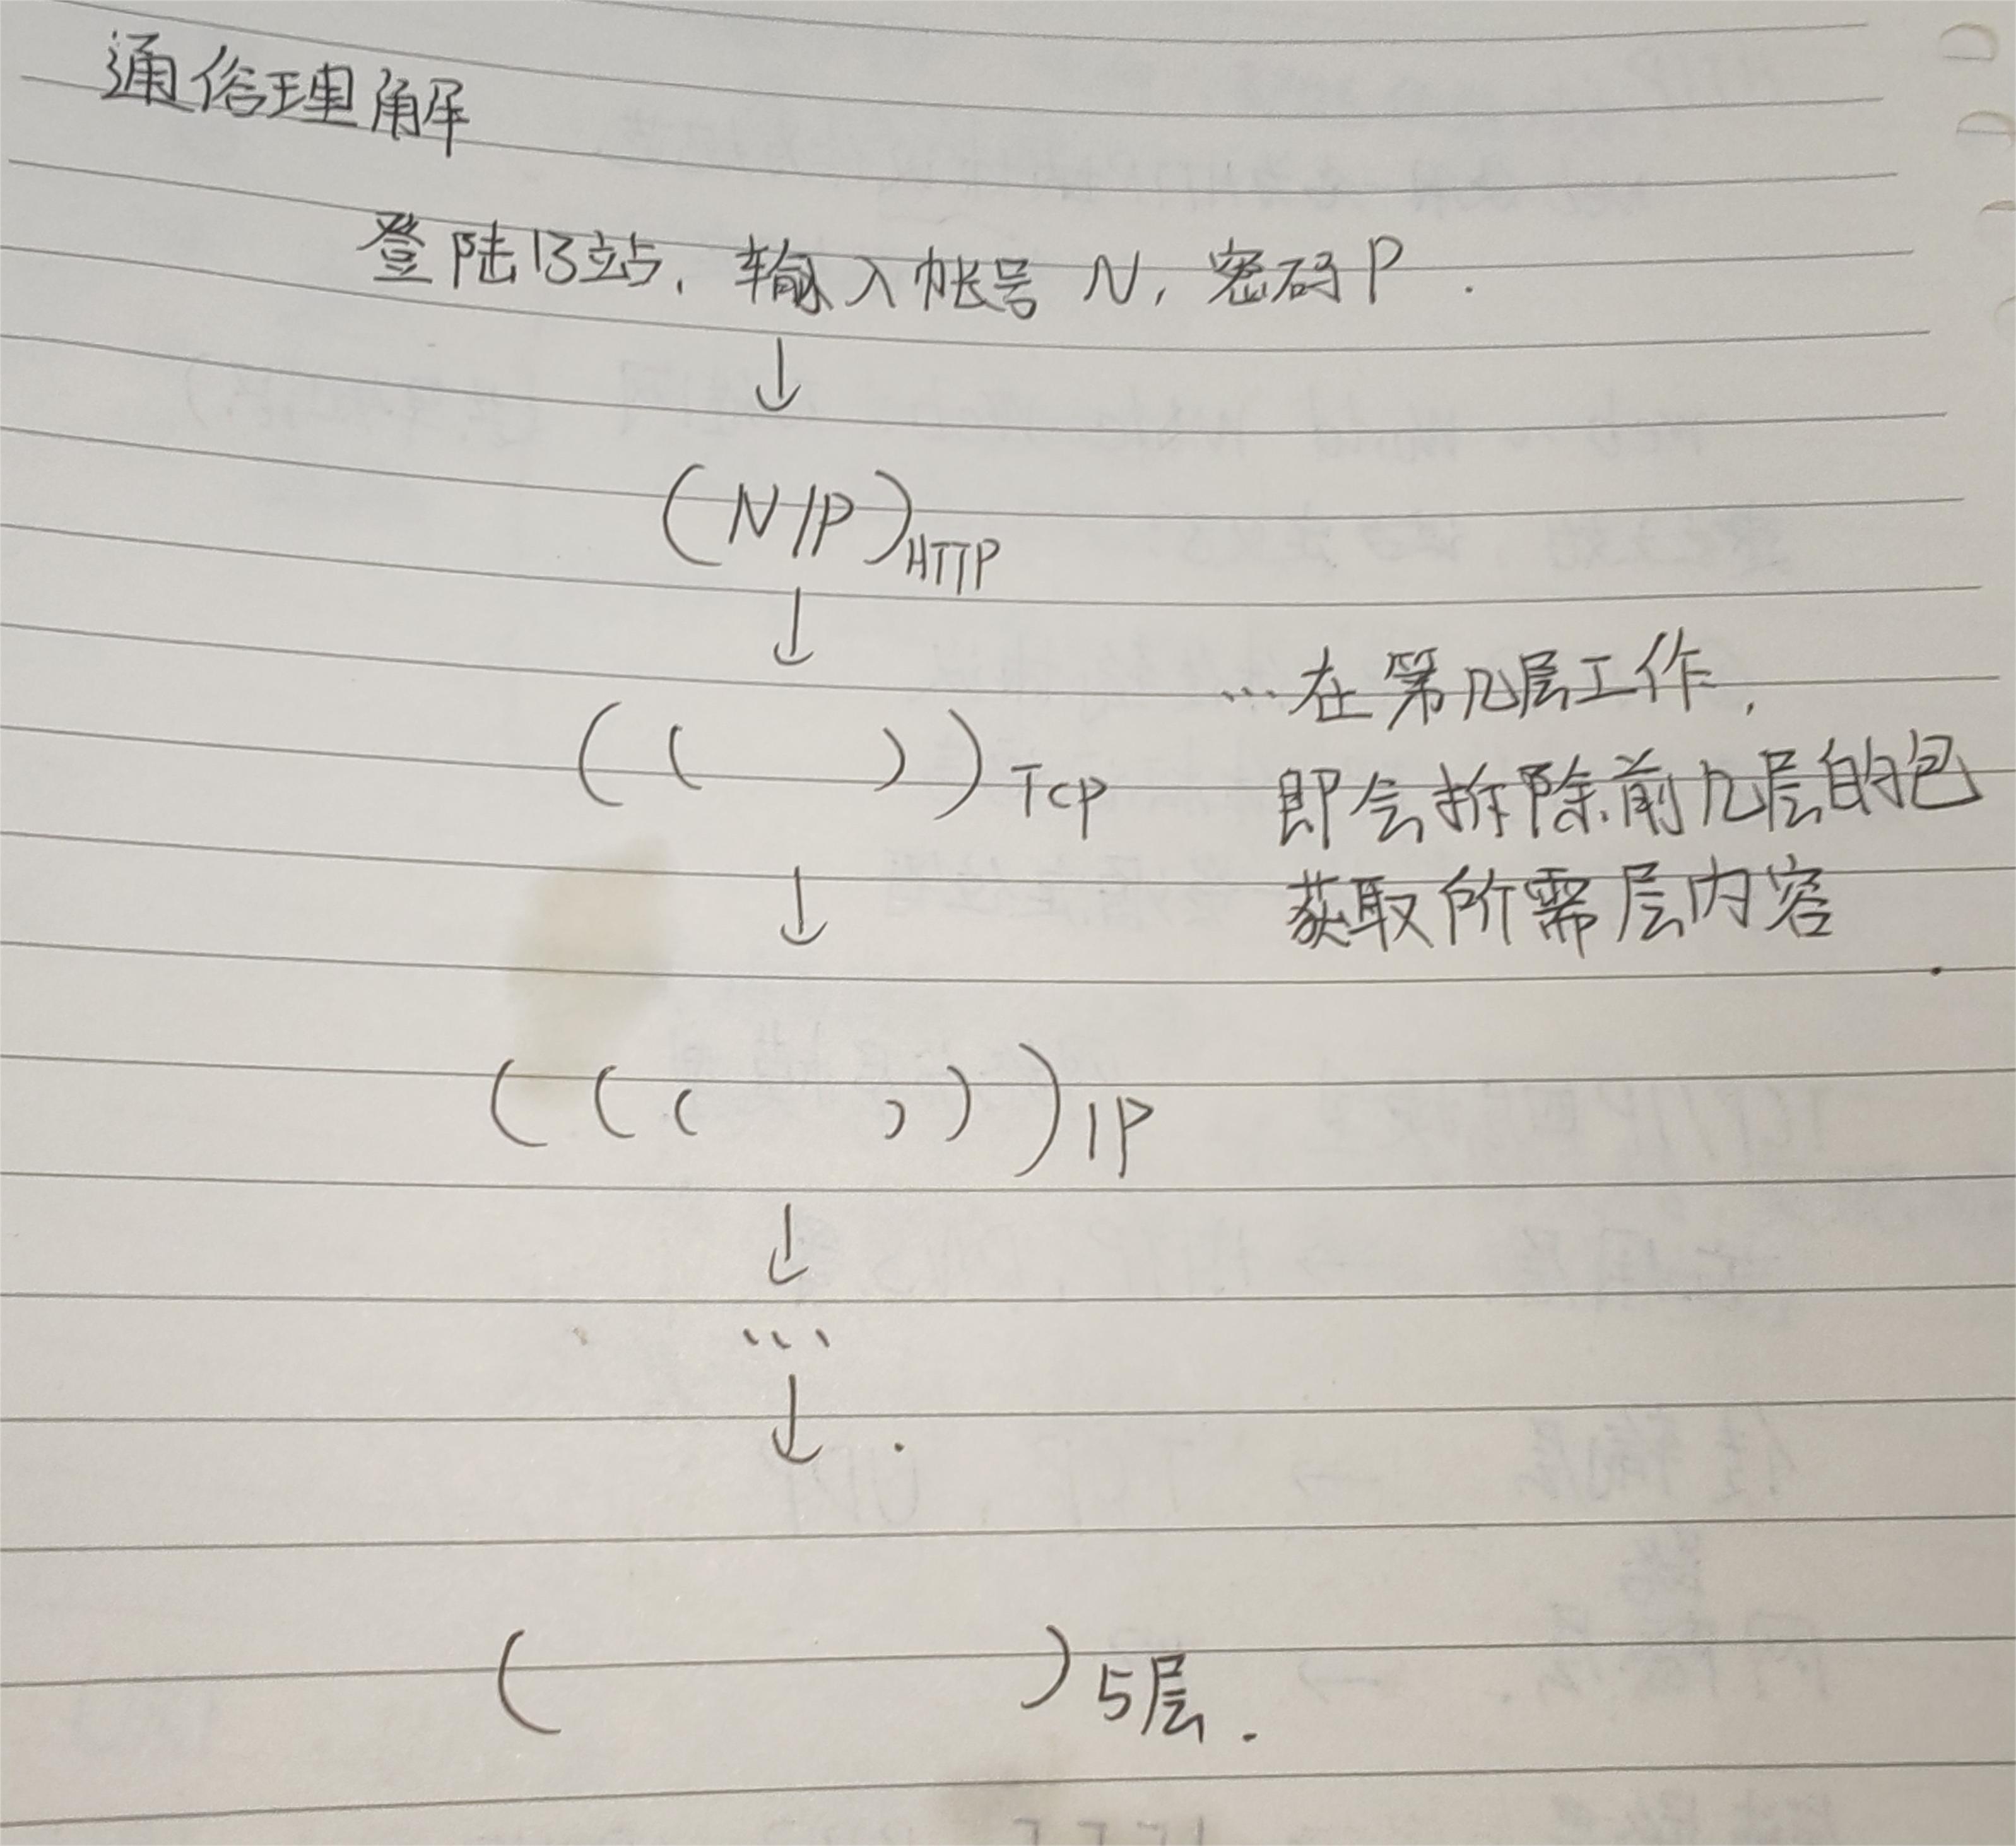 通俗理解
登陆B站，输入帐号 N，密码 P .
↓
(N/P)HTTP
↓
(( ))Tcp
…在第几层工作，
即会拆除前几层的包
获取所需层内容
↓
((( )))IP
↓
…
↓
( )5层.